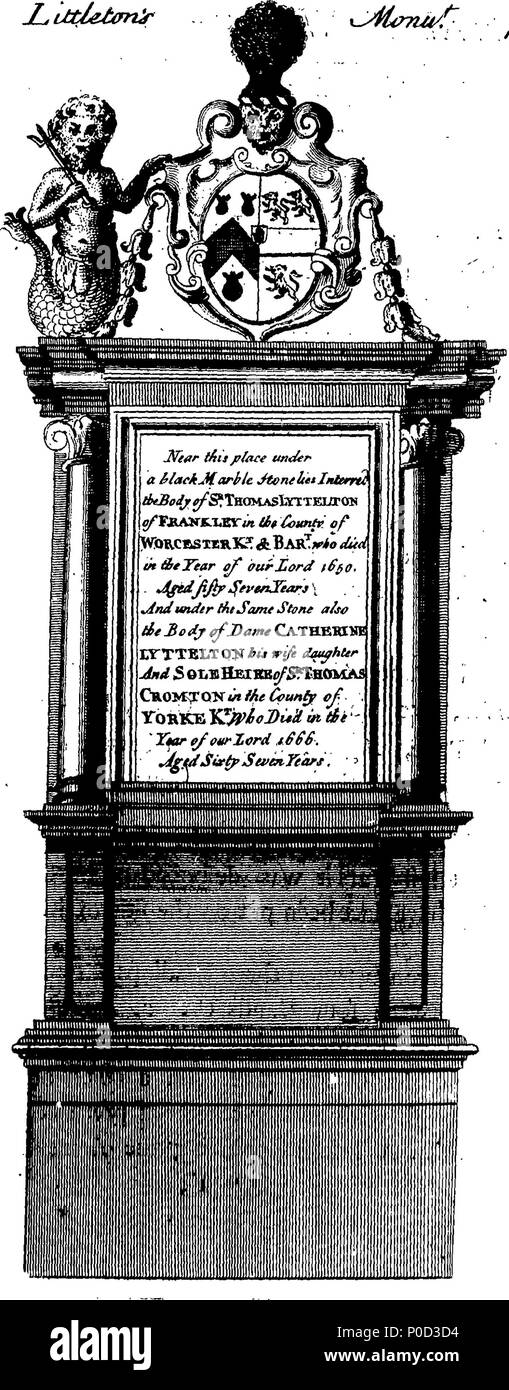 Littleton's Monut.
Near this place under
a black Marble Stone lies Interred
the Body of Sr. THOMAS LYTTELTON
of FRANKLEY in the County of
WORCESTER Kt. & BART. who died
in the Year of our Lord 1650.
Aged fifty Seven Years
And under the Same Stone also
the Body of Dame CATHERINE
LYTTELTON his wife daughter
And SOLE HEIRE of Sr. THOMAS
CROMTON in the County of
YORKE Kt. Who Died in the
Year of our Lord 1666.
Aged Sixty Seven Years.
alamy
alamy
Image ID: P0D3D4
www.alamy.com